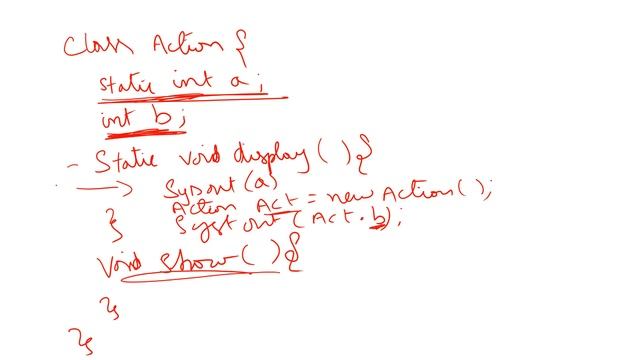 Class Action {
static int a;
int b;
- Static void display ( ) {
Sysout (a)
Action Act = new Action( );
}
Syst out ( Act . b);
void show( ) {
}
}